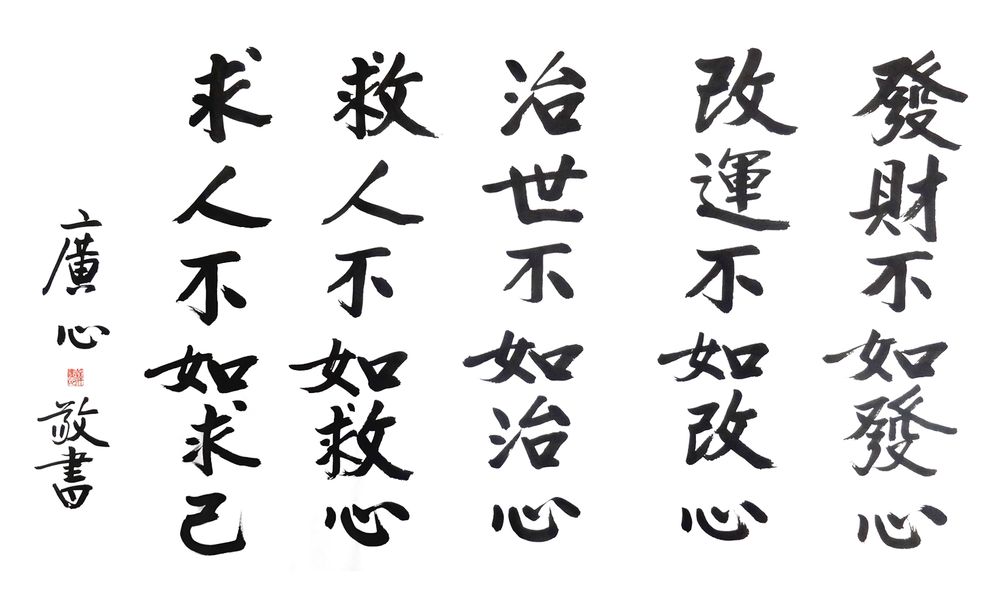 發財不如發心
改運不如改心
治世不如治心
救人不如救心
求人不如求己
廣心敬書